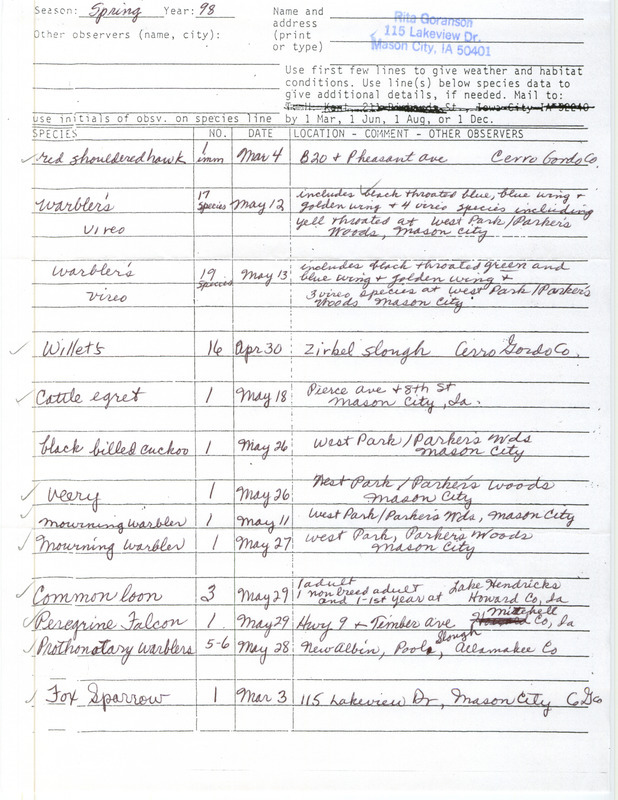 Season: Spring Year: 98 Name and
address
(print
or type)
Rita Goranson
115 Lakeview Dr.
Mason City, IA 50401
Other observers (name, city):
Use first few lines to give weather and habitat
conditions. Use line(s) below species data to
give additional details, if needed. Mail to:
T. H. Kent, 211 Richards St., Iowa City IA 52240
use initials of obsv. on species line by 1 Mar, 1 Jun, 1 Aug, or 1 Dec.
SPECIES NO. DATE LOCATION - COMMENT - OTHER OBSERVERS
✓ red shouldered hawk 1 imm Mar 4 B20 + Pheasant Ave Cerro Gordo Co.
Warbler's 17 species May 12 includes black throated blue, blue wing +
golden wing + 4 vireo species including
Vireo yell throated at West Park/Parkers
Woods, Mason City
Warbler's 19 species May 13 includes black throated green and
blue wing + golden wing +
vireo 3 vireo species at West Park/Parker's
Woods Mason City
✓ Willets 16 Apr 30 Zirbel Slough Cerro Gordo Co.
✓ Cattle egret 1 May 18 Pierce Ave + 8th St
Mason City, Ia.
black billed cuckoo 1 May 26 West Park/Parkers Wds
Mason City
✓ veery 1 May 26 West Park/Parkers Woods
Mason City
✓ mourning warbler 1 May 11 West Park/Parkers Wds, Mason City
✓ Mourning warbler 1 May 27 West Park, Parkers Woods
Mason City
✓ Common loon 3 May 29 1 adult
1 non breed adult Lake Hendricks
and 1-1st year at Howard Co, Ia
✓ Peregrine Falcon 1 May 29 Hwy 9 + Timber Ave Howard Mitchell Co, Ia
✓ Prothonotary warblers 5-6 May 28 New Albin, Pool Slough, Allamakee Co
✓ Fox Sparrow 1 Mar 3 115 Lakeview Dr, Mason City C G Co